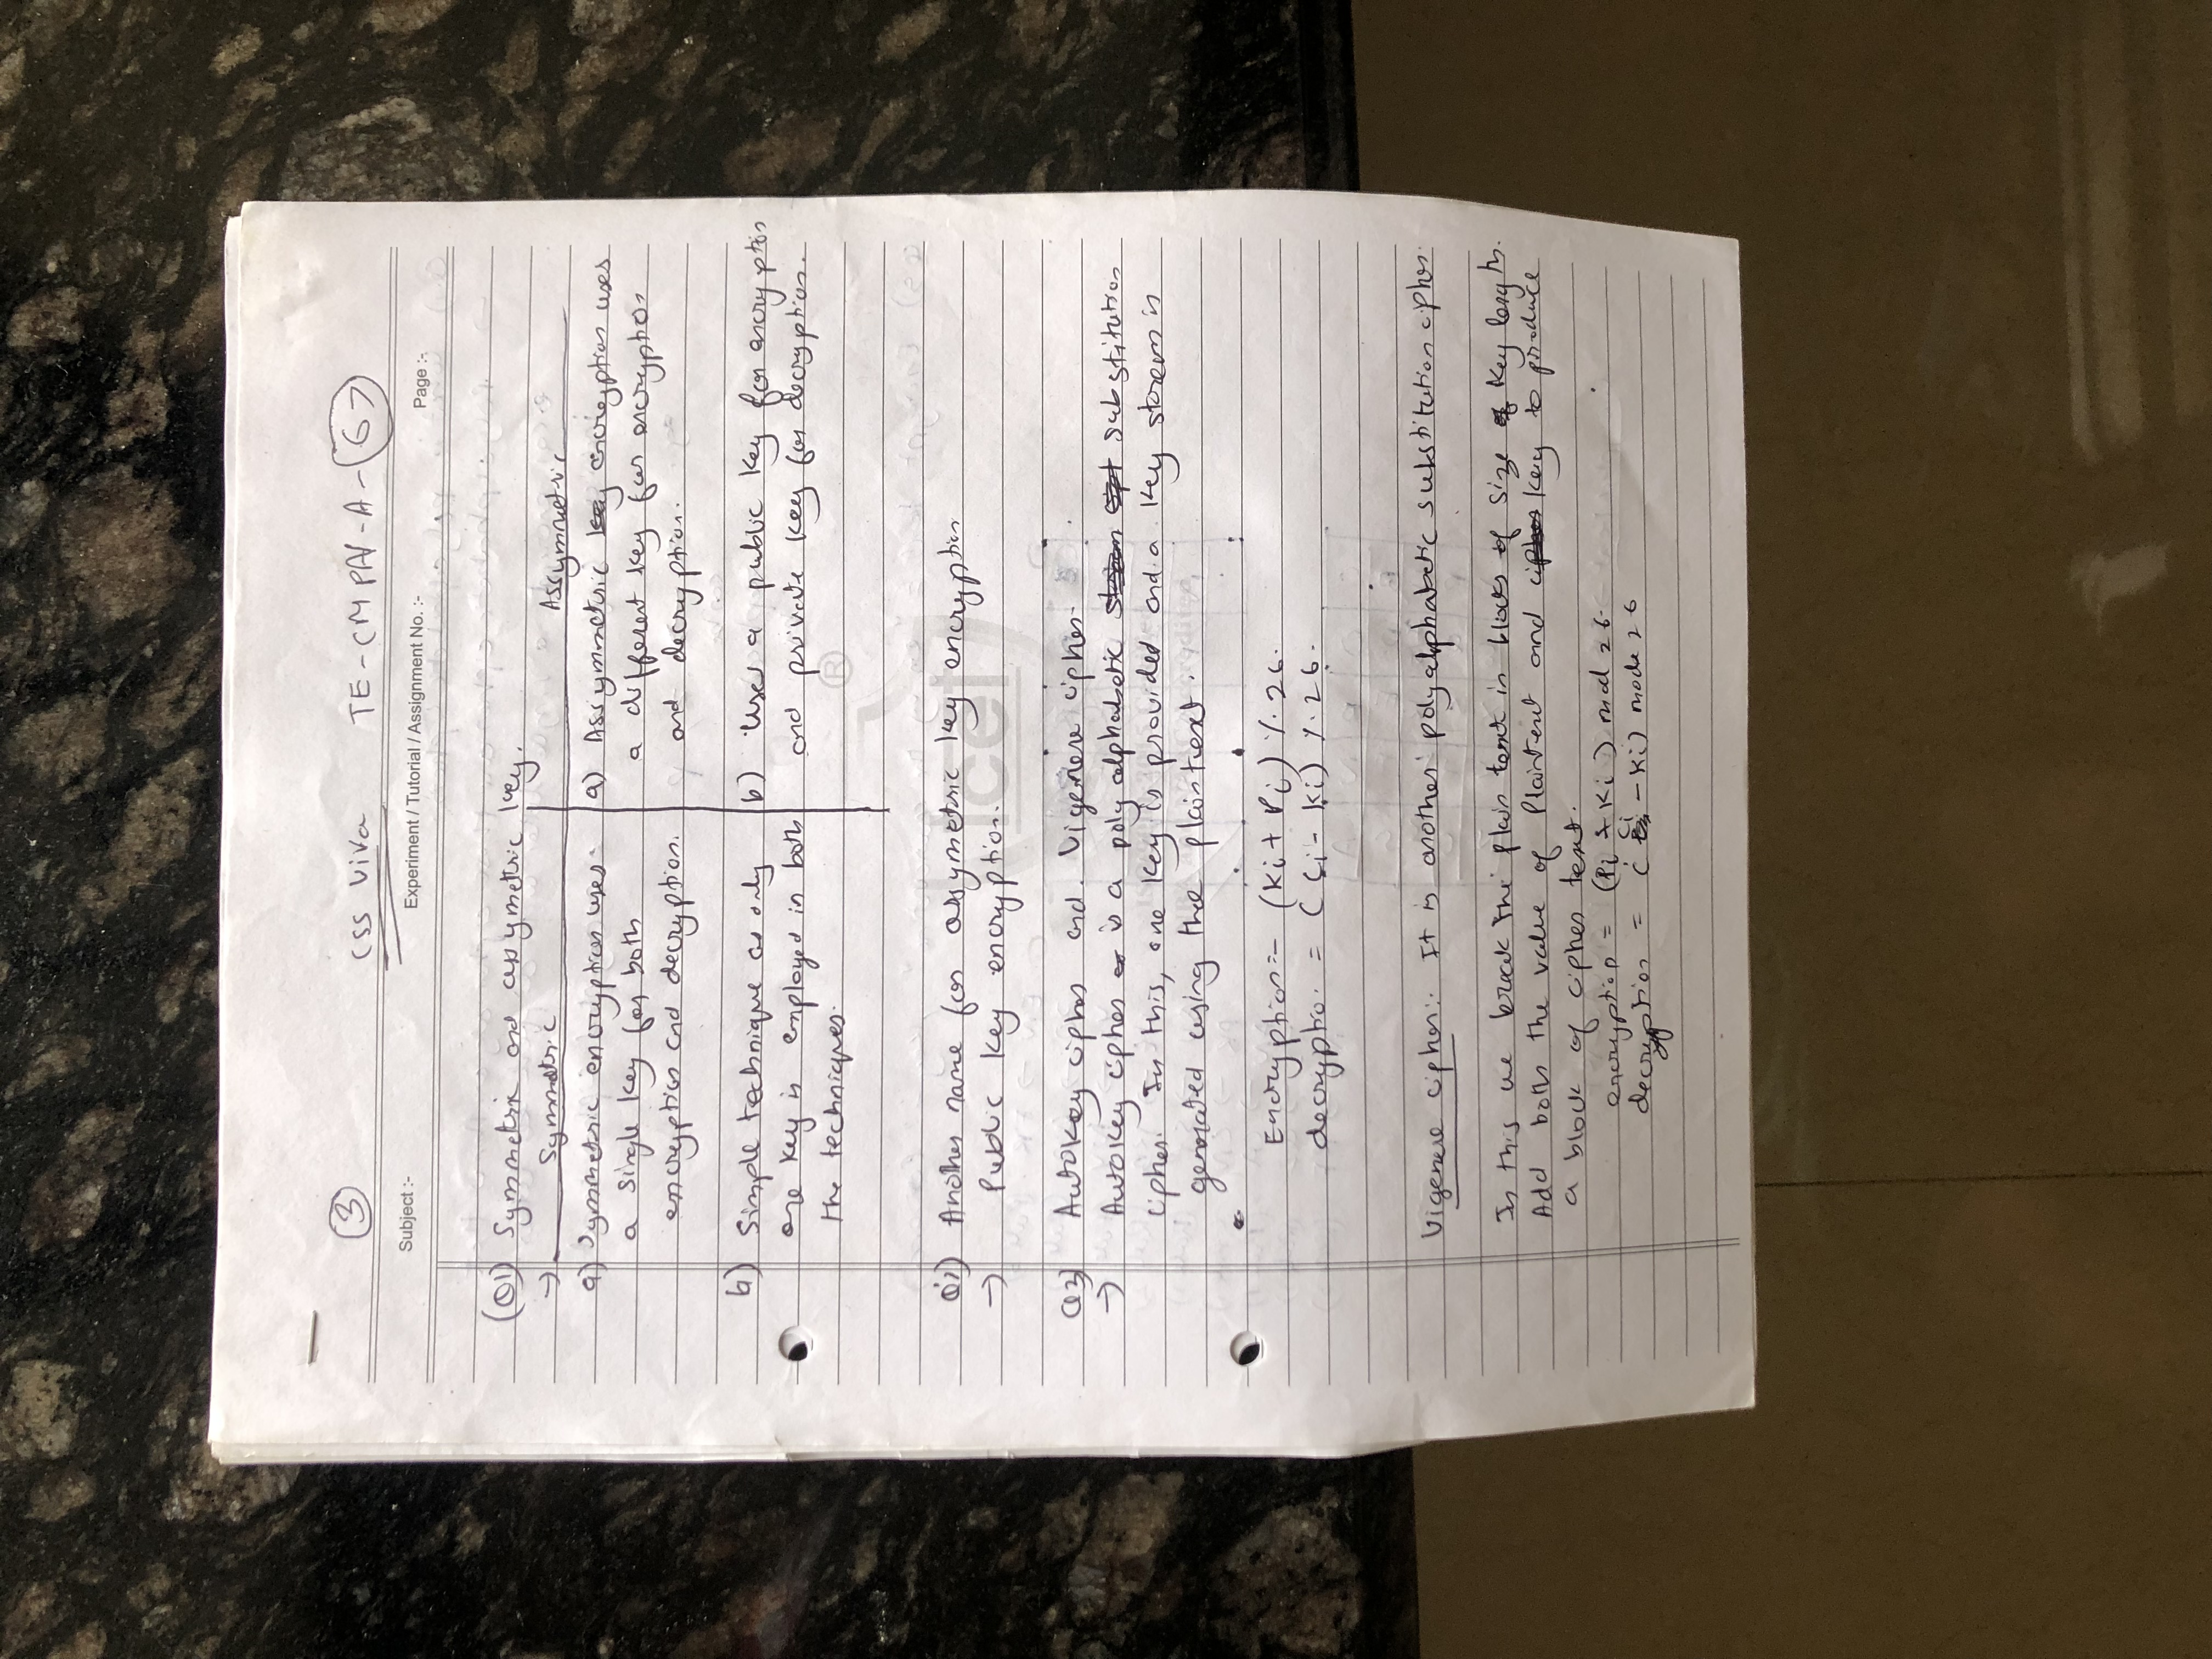 3 CSS Viva TE-CMPN-A- 67
Subject :- Experiment / Tutorial / Assignment No. :- Page :-
(Q1) Symmetric and assymetric key.
→ Symmetric Assymmetric
a) Symmetric encryption uses a) Assymmetric key encryption uses
a single key for both a different key for encryption
encryption and decryption. and decryption.
b) Simple technique as only b) Uses a public key for encryption
one key is employed in both and private key for decryption.
the techniques.
Another name for assymetric key encryption
→ Public key encryption.
Q3 Autokey cipher and Vigenere cipher.
→ Autokey cipher is a polyalphabetic substitution
cipher. In this, one key is provided and a key stream is
generated using the plaintext.
Encryption = (Ki + Pi) % 26.
decryption = (Ci - Ki) % 26.
Vigenere cipher: It is another polyalphabetic substitution cipher.
In this we break the plain text in blocks of size key length.
Add both the value of Plaintext and key to produce
a block of cipher text.
encryption = (Pi + Ki) mod 26.
decryption = (Ci - Ki) mode 26